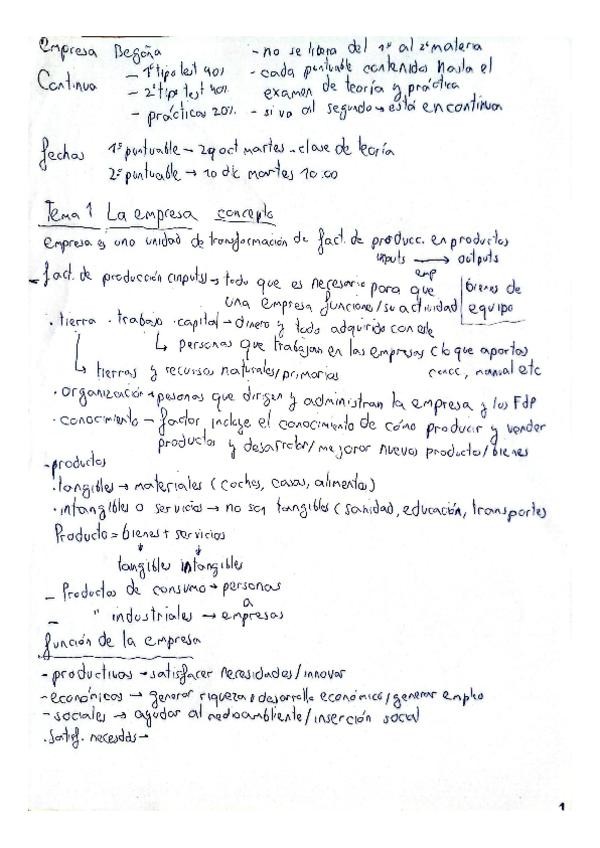 Empresa Begoña - no se libra del 1º al 2º materia
Continua - 1º tipo test 40% - cada puntuable contenidos hasta el
- 2º tipo test 40% examen de teoría y práctica
- prácticas 20% - si va al segundo → está en continua
fechas 1º puntuable - 29 oct martes - clase de teoría
2º puntuable → 10 dic martes 10:00
Tema 1 La empresa concepto
empresa es una unidad de transformación de fact. de producc. en productos
inputs → outputs
emp
- fact. de producción (inputs) → todo que es necesario para que
una empresa funcione/su actividad
bienes de
equipo
· tierra · trabajo · capital → dinero y todo adquirido con este
↳ personas que trabajan en las empresas c lo que aportas
↳ tierras y recursos naturales/primarios conoc, manual etc
· organización → personas que dirigen y administran la empresa y los FdP
· conocimiento - factor incluye el conocimiento de cómo producir y vender
productos y desarrolar/mejorar nuevos producto/bienes
- productos
· tangibles → materiales (coches, casas, alimentos)
· intangibles o servicios → no son tangibles (sanidad, educación, transportes
Producto = bienes + servicios
tangibles intangibles
- Productos de consumo → personas
- " industriales → a empresas
función de la empresa
- productivas → satisfacer necesidades/innovar
- económicas → generar riqueza, desarrollo económico/generar empleo
- sociales → ayudar al medioambiente/inserción social
· Satisf. necesdds -
1